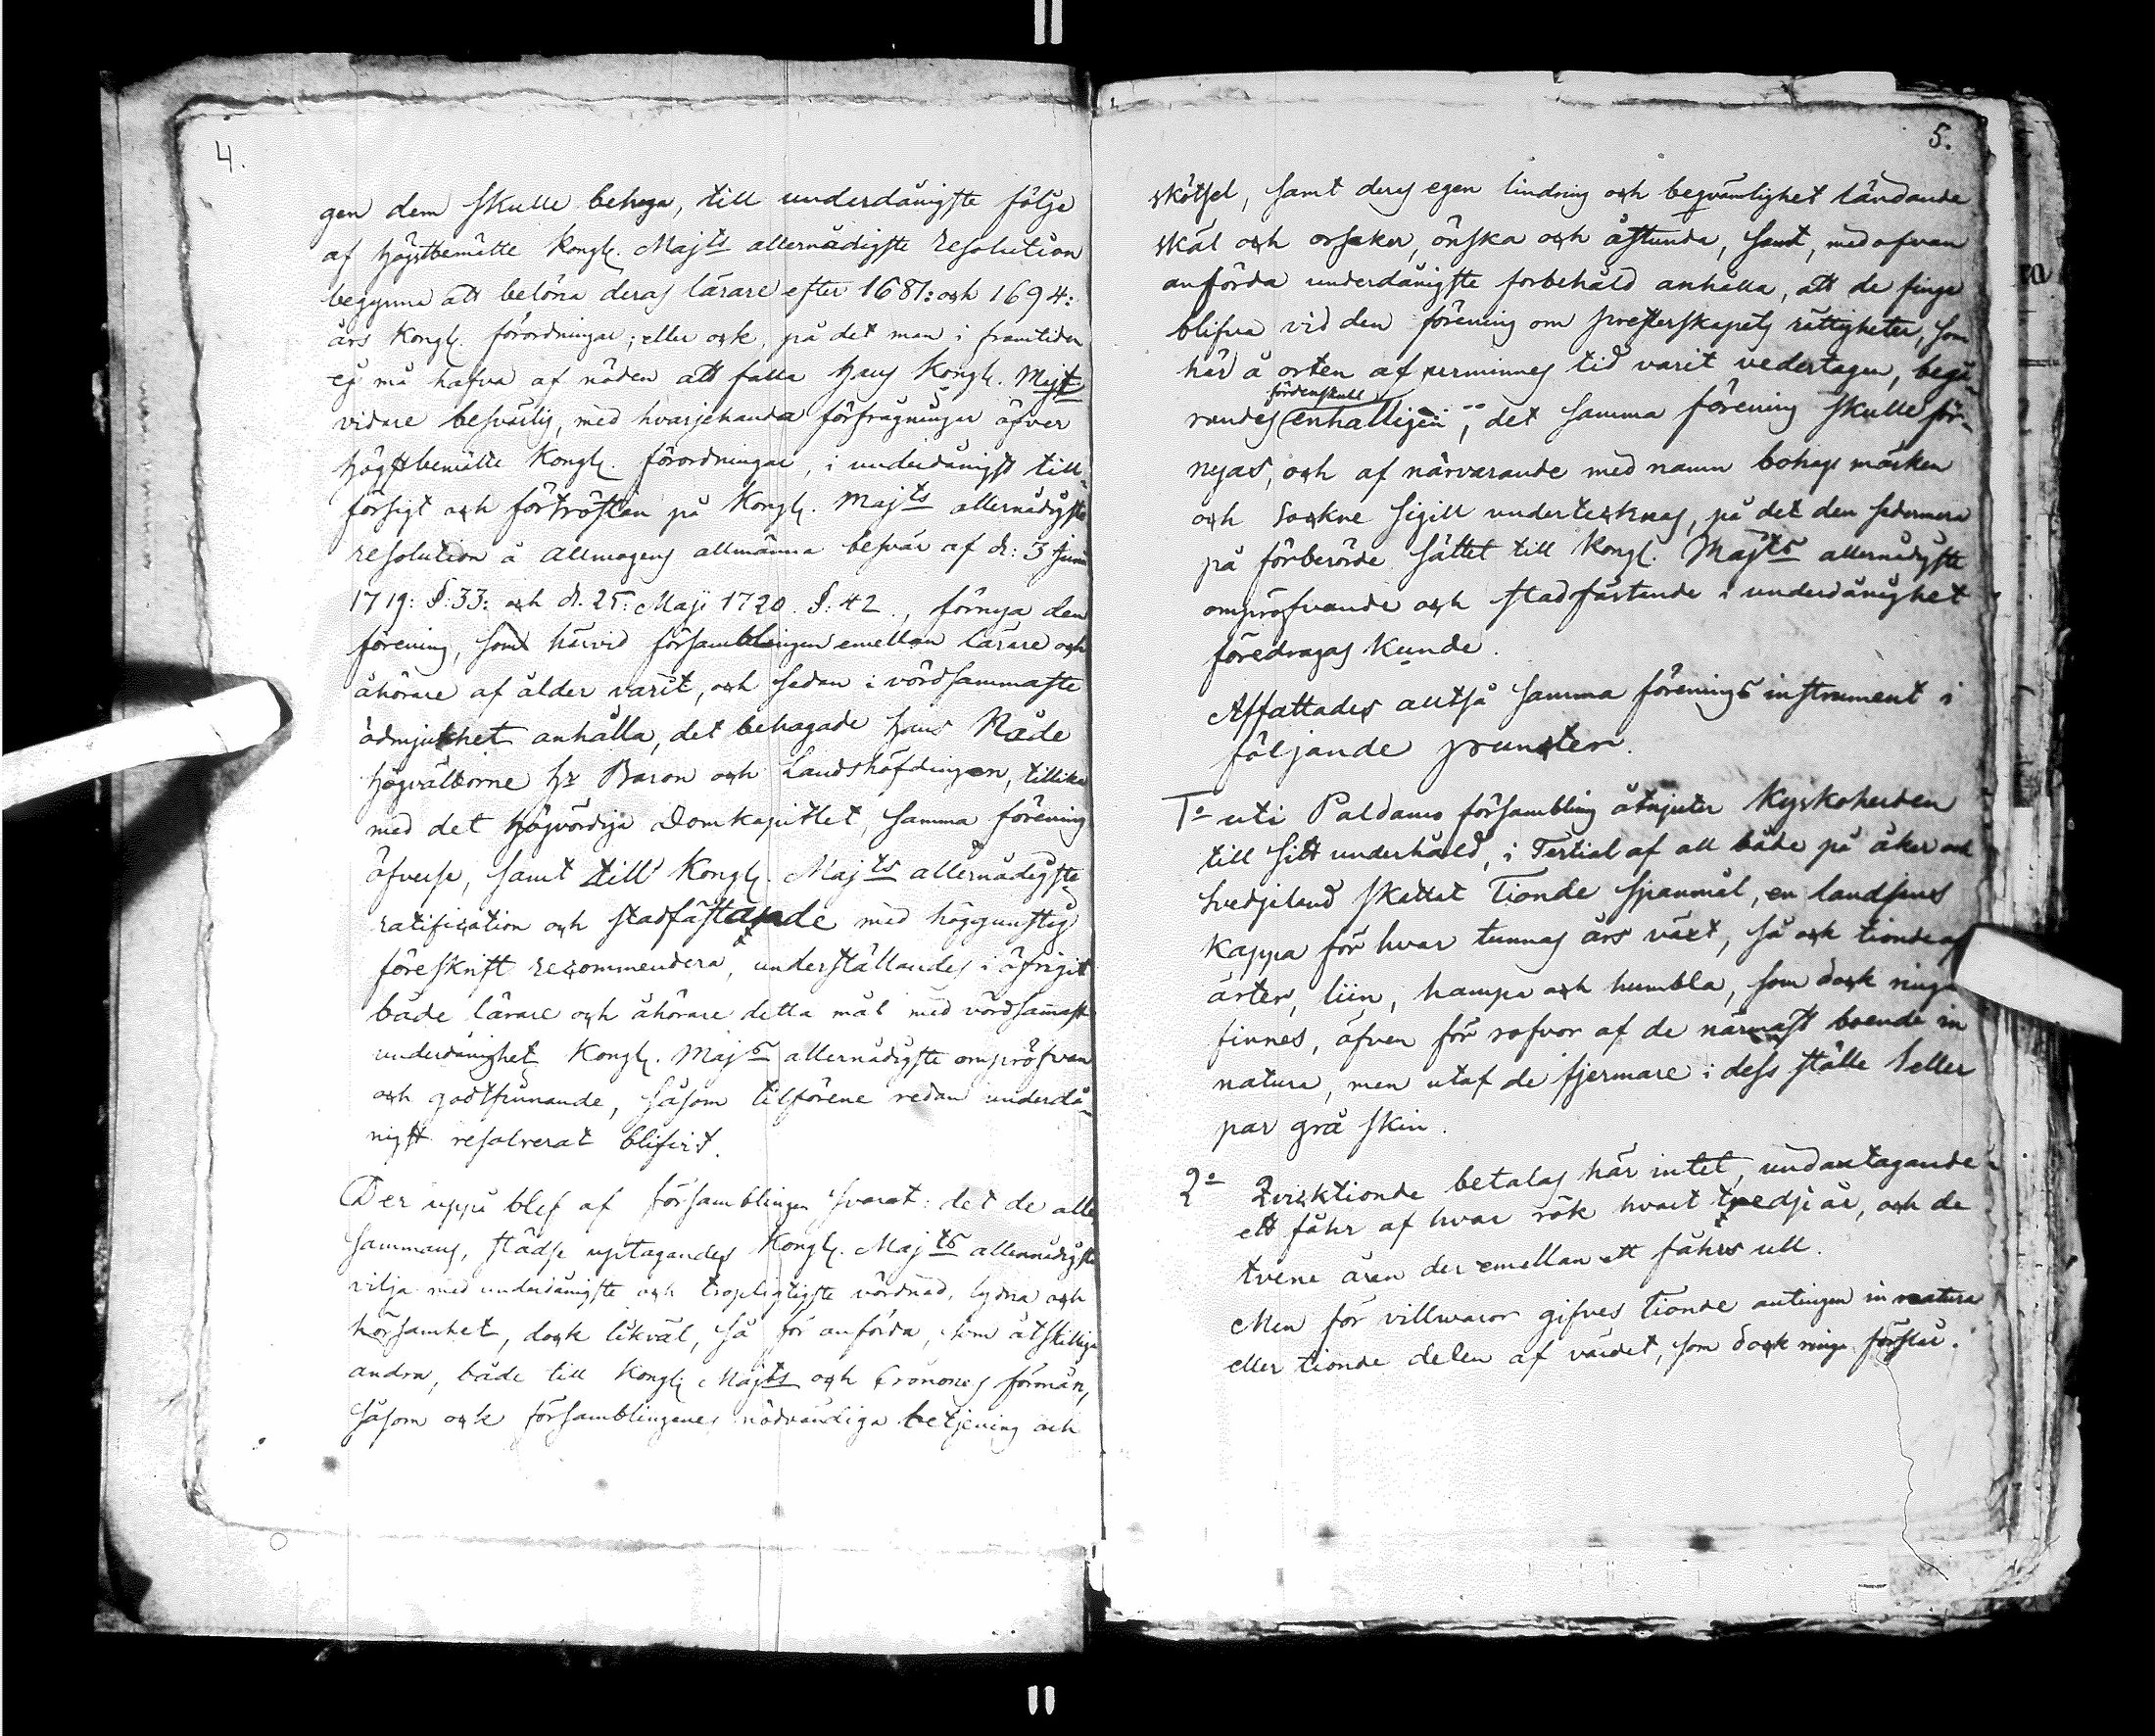 4.
gen dem skulle behaga, till underdånigste följe
af högstbemälte Kongl. Majts allernådigste resolution
begynna att belöna deras lärare efter 1681: och 1694:
års Kongl. förordningar; eller ock, på det man i framtiden
ej må hafva af nöden att falla Hans Kongl. Majt
vidare besvärlig, med hvarjehanda förfrågningar öfver
högstbemälte Kongl. förordningar, i underdånigst till-
försigt och förtröstan på Kongl. Majts allernådigste
resolution å allmogens allmänna besvär af d: 3 Junii
1719: §:33: och d. 25: Maji 1720. §: 42., förnya den
förening, som härvid församblingen emellan lärare och
åhörare af ålder varit, och sedan i vördsammaste
ödmjukhet anhålla, det behagade Hans Nåde
högvälborne Hr Baron och Landshöfdingen, tillika
med det högvördiga Domkapitlet, samma förening
öfverse, samt till Kongl. Majts allernådigste
ratification och stadfästande med höggunstig
föreskrift recommendera, underställandes i öfrigit
både lärare och åhörare detta mål med vördsammast
underdånighet Kongl. Majts allernådigste ompröfvan
och godtfinnande, såsom tilförene redan underdå-
nigst resolverat blifvit.
Der uppå blef af församblingen svarat: det de alle
sammans, städse uptagandes Kongl. Majts allernådigste
vilja med underdånigste och tropligtigste vördnad, lydna och
hörsamhet, dock likväl, så för anförda, som åtskillige
andra, både till Kongl. Majts och Cronones förmån,
såsom ock församblingenes nödvändiga betjening och
5.
skötsel, samt deras egen lindring och beqvämlighet ländande
skäl och orsaker, önska och åstunda, samt, med ofvan
anförda underdånigste forbehåld anhålla, att de finge
blifva vid den förening om presterskapets rättigheter, som
här å orten af urminnes tid varit vedertagen, begä-
fördenskull
randes enhälligen, det samma förening skulle för-
nyas, och af närvarande med namn bohags märken
och Sockne sigill undertecknas, på det den sedermera
på förberörde sättet till Kongl. Majts allernådigste
ompröfvande och stadfästande i underdånighet
föredragas kunde.
Affattades alltså samma förenings instrument i
följande puncter.
1o uti Paldamo försambling åtnjuter Kyrkoherden
till sitt underhåld, i Tertial af all både på åker och
svedjeland skattat Tionde spanmål, en landsens
kappa för hvar tunnas års växt, så ock tionde af
ärter, liin, hampa och humbla, som dock ringa
finnes, äfven för rofvor af de närmast boende in
natura, men utaf de fjermare i dess ställe 1 eller
par grå skin.
2o Qvicktionde betalas här intet, undantagande
ett fåhr af hvar rök hvart tredje år, och de
tvene åren der emellan ett fåhrs ull.
Men för villwaror gifves Tionde antingen in natura
eller tionde delen af värdet, som dock ringa förslår.